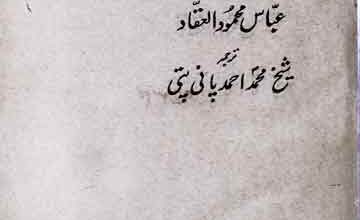 عبّاس محمود العقاد
ترجمہ
شیخ محمد احمد پانی پتی